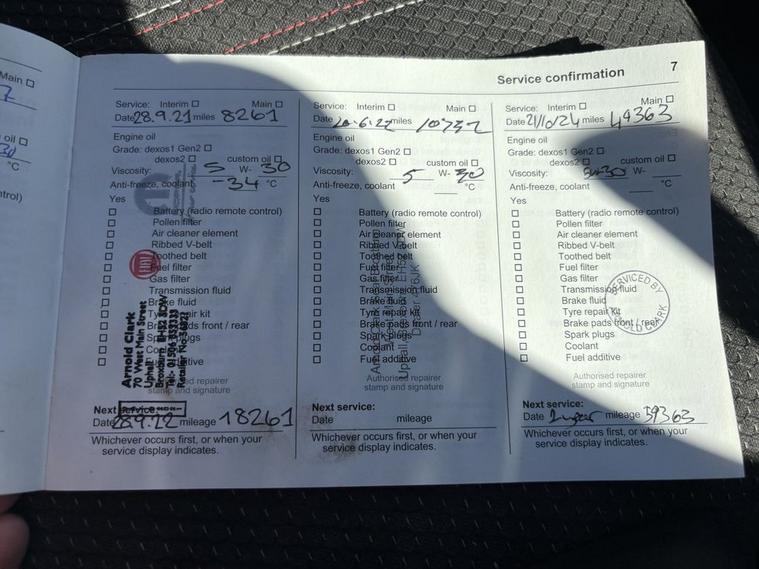 Main
oil
°C
trol)
Service confirmation 7
Service: Interim Main
Date 28.9.21 miles 8261
Engine oil
Grade: dexos1 Gen2
dexos2 custom oil
Viscosity: 5 W- 30
Anti-freeze, coolant -34 °C
Yes
Battery (radio remote control)
Pollen filter
Air cleaner element
Ribbed V-belt
Toothed belt
Fuel filter
Gas filter
Transmission fluid
Brake fluid
Tyre repair kit
Brake pads front / rear
Spark plugs
Coolant
Fuel additive
FIAT
Arnold Clark
70 West Main Street
Uphall
Broxburn, EH52
Authorised repairer
stamp and signature
Next service:
Date 28.9.22 mileage 18261
Whichever occurs first, or when your
service display indicates.
Service: Interim Main
Date 20.6.22 miles
Engine oil
Grade: dexos1 Gen2
dexos2 custom oil
Viscosity: 5 W- 30
Anti-freeze, coolant °C
Yes
Battery (radio remote control)
Pollen filter
Air cleaner element
Ribbed V-belt
Toothed belt
Fuel filter
Gas filter
Transmission fluid
Brake fluid
Tyre repair kit
Brake pads front / rear
Spark plugs
Coolant
Fuel additive
Authorised repairer
stamp and signature
Next service:
Date mileage
Whichever occurs first, or when your
service display indicates.
Service: Interim Main
Date 21/10/24 miles 49363
Engine oil
Grade: dexos1 Gen2
dexos2 custom oil
Viscosity: W-
Anti-freeze, coolant °C
Yes
Battery (radio remote control)
Pollen filter
Air cleaner element
Ribbed V-belt
Toothed belt
Fuel filter
Gas filter
Transmission fluid
Brake fluid
Tyre repair kit
Brake pads front / rear
Spark plugs
Coolant
Fuel additive
SERVICED BY
SPARK
Authorised repairer
stamp and signature
Next service:
Date 1 year mileage 59363
Whichever occurs first, or when your
service display indicates.